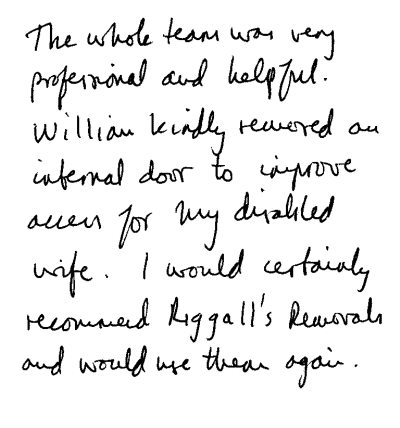 The whole team was very
professional and helpful.
William kindly removed an
internal door to improve
access for my disabled
wife. I would certainly
recommend Riggall's Removals
and would use them again.